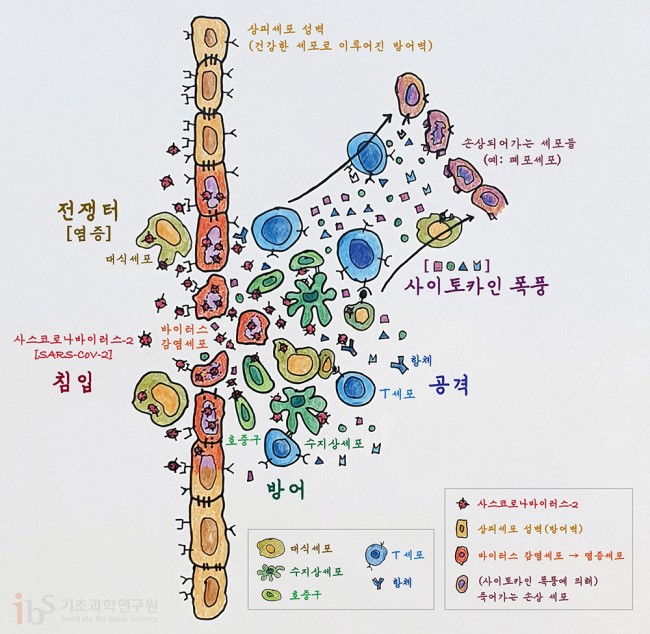 상피세포 성벽
(건강한 세포로 이루어진 방어벽)
손상되어가는 세포들
(예: 폐포세포)
전쟁터
[염증]
대식세포
[ ]
사이토카인 폭풍
사스코로나바이러스-2
[SARS-CoV-2]
침입
바이러스
감염세포
항체
T세포
공격
호중구
수지상세포
방어
대식세포
수지상세포
호중구
T세포
항체
사스코로나바이러스-2
상피세포 성벽(방어벽)
바이러스 감염세포 → 염증세포
(사이토카인 폭풍에 의해)
죽어가는 손상 세포
ibS 기초과학연구원
Institute for Basic Science